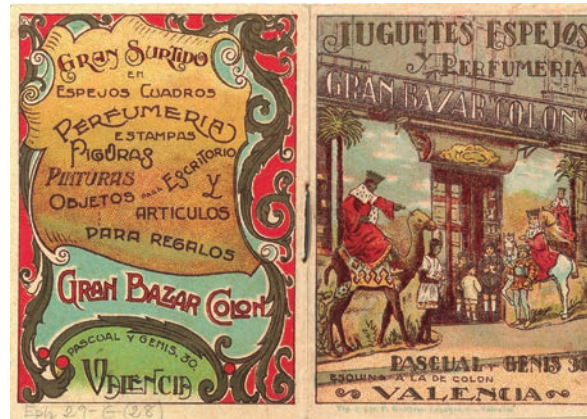 GRAN SURTIDO
EN
ESPEJOS CUADROS
PERFUMERIA
ESTAMPAS
FIGURAS
PINTURAS
OBJETOS PARA ESCRITORIO
Y
ARTICULOS
PARA REGALOS
GRAN BAZAR COLON
PASCUAL Y GENIS, 30.
VALENCIA
Eph. 29-G (28)
JUGUETES-ESPEJOS
Y PERFUMERIA
GRAN BAZAR COLON
PASCUAL Y GENIS 30
ESQUINA A LA DE COLON
VALENCIA